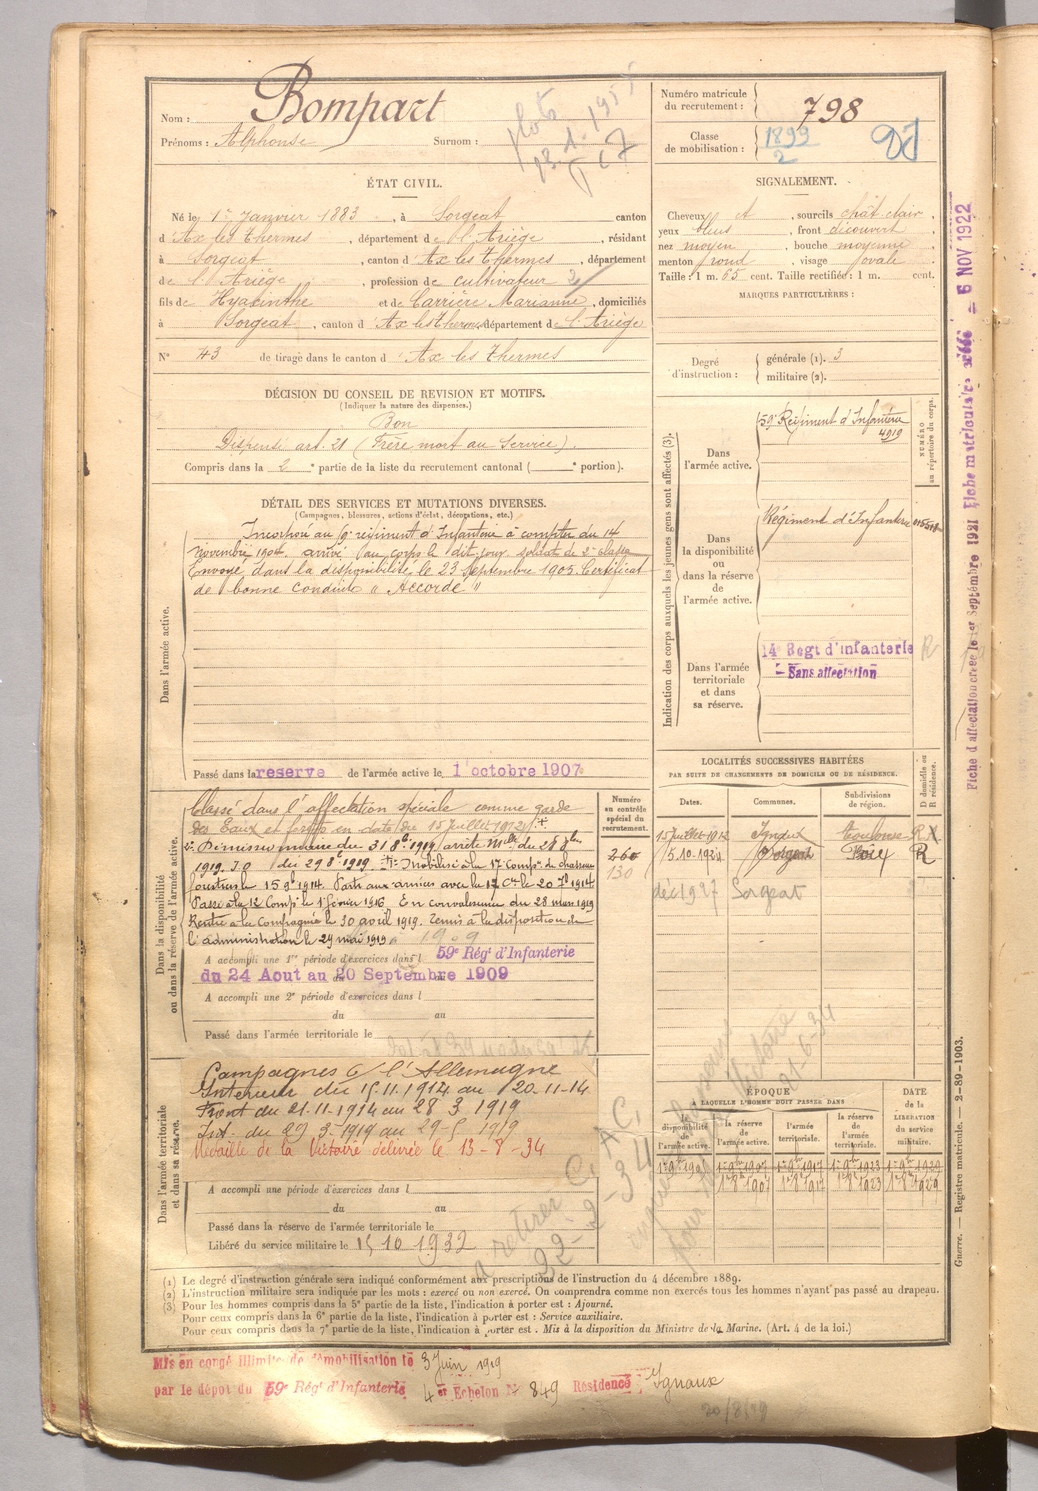 Nom : Bompart
Prénoms : Alphonse Surnom :
Numéro matricule du recrutement : 798
Classe de mobilisation : 1899/2
ÉTAT CIVIL.
Né le 1er Janvier 1883, à Sorgeat canton
d'Ax les Thermes, département de l'Ariège, résidant
à Sorgeat, canton d'Ax les Thermes, département
de l'Ariège, profession de cultivateur
fils de Hyacinthe et de Carrière Marianne, domiciliés
à Sorgeat, canton d'Ax les Thermes, département de l'Ariège
N° 43 de tirage dans le canton d'Ax les Thermes
SIGNALEMENT.
Cheveux ct, sourcils chât clair,
yeux bleus, front découvert,
nez moyen, bouche moyenne,
menton rond, visage ovale.
Taille : 1 m. 65 cent. Taille rectifiée : 1 m. cent.
MARQUES PARTICULIÈRES :
Degré d'instruction : générale (1). 3
militaire (2).
DÉCISION DU CONSEIL DE REVISION ET MOTIFS.
(Indiquer la nature des dispenses.)
Bon
Dispensé art. 21 (Frère mort au Service).
Compris dans la 2e partie de la liste du recrutement cantonal ( e portion).
DÉTAIL DES SERVICES ET MUTATIONS DIVERSES.
(Campagnes, blessures, actions d'éclat, décorations, etc.)
Dans l'armée active.
Incorporé au 59e régiment d'Infanterie à compter du 14
novembre 1904. arrivé au corps le dit jour, soldat de 2e classe
Envoyé dans la disponibilité le 23 Septembre 1905. Certificat
de bonne conduite "Accordé"
Passé dans la reserve de l'armée active le 1 octobre 1907
Indication des corps auxquels les jeunes gens sont affectés (3).
NUMÉRO au répertoire du corps.
Dans l'armée active.
59e Régiment d'Infanterie
4919
Dans la disponibilité ou dans la réserve de l'armée active.
Régiment d'Infanterie
Dans l'armée territoriale et dans sa réserve.
14 Regt d'infanterie
Sans affectation
R
Dans la disponibilité ou dans la réserve de l'armée active.
Classé dans l'affectation spéciale comme garde
des Eaux et forêts en date du 15 Juillet 1912
Démissionnaire du 31 8bre 1919 arrêté Mel du 28 8bre
1919 J.O du 29 8bre 1919. Mobilisé à la 17e Compie de chasseurs
forestiers le 15 9bre 1914. Parti aux armées avec la 17 Cie le 20 9bre 1914
Passé à la 12 Compie le 1er février 1916. En convalescence du 28 mars 1919
Rentré à la Compagnie le 30 avril 1919. Remis à la disposition de
l'administration le 29 mai 1919
A accompli une 1re période d'exercices dans l 59e Régt d'Infanterie
du 24 Aout au 20 Septembre 1909
A accompli une 2e période d'exercices dans l
du au
Passé dans l'armée territoriale le
Numéro au contrôle spécial du recrutement.
260
130
LOCALITÉS SUCCESSIVES HABITÉES
PAR SUITE DE CHANGEMENTS DE DOMICILE OU DE RÉSIDENCE.
Dates. Communes. Subdivisions de région. D domicile ou R résidence.
15 Juillet 1912 Ignaux Toulouse R
5.10.1924 Sorgeat Foix R
déc 1927 Sorgeat
Dans l'armée territoriale et dans sa réserve.
Campagnes c/ l'Allemagne
Intérieur du 15.11.1914 au 20-11-14
Front du 21-11-1914 au 28 3 1919
Int. du 29 3-1919 au 29-5 1919
Médaille de la Victoire délivrée le 13-8-34
A accompli une période d'exercices dans l
du au
Passé dans la réserve de l'armée territoriale le
Libéré du service militaire le 15 10 1932
ÉPOQUE
A LAQUELLE L'HOMME DOIT PASSER DANS
la disponibilité de l'armée active. la réserve de l'armée active. l'armée territoriale. la réserve de l'armée territoriale.
DATE de la LIBÉRATION du service militaire.
1er 9bre 1907 1er 9bre 1917 1er 9bre 1923 1er 9bre 1929
1er 8bre 1907 1er 8bre 1917 1er 8bre 1923 1er 8bre 1929
(1) Le degré d'instruction générale sera indiqué conformément aux prescriptions de l'instruction du 4 décembre 1889.
(2) L'instruction militaire sera indiquée par les mots : exercé ou non exercé. On comprendra comme non exercés tous les hommes n'ayant pas passé au drapeau.
(3) Pour les hommes compris dans la 5e partie de la liste, l'indication à porter est : Ajourné.
Pour ceux compris dans la 6e partie de la liste, l'indication à porter est : Service auxiliaire.
Pour ceux compris dans la 7e partie de la liste, l'indication à porter est : Mis à la disposition du Ministre de la Marine. (Art. 4 de la loi.)
Mis en congé illimité de démobilisation le 3 Juin 1919
par le dépôt du 59e Régt d'Infanterie 4er Echelon N° 849 Résidence Ignaux
20/8/19
Guerre. — Registre matricule. — 2-89-1903.
Fiche d'affectation créée le 1er Septembre 1921 Fiche matriculaire créée - 6 NOV 1922